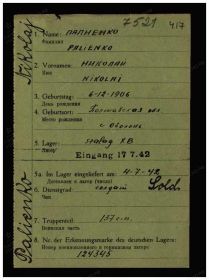 7521 417
Nikolaj
Palienko
1. Name: ПАЛИЕНКО
Фамилия
PALIENKO
2. Vorname: НИКОЛАЙ
Имя
NIKOLAJ
3. Geburtstag: 6-12-1906
День рождения
4. Geburtsort: Полтавская обл
Место рождения
с
5. Lager: Stalag XB
Лагерь
Eingang 17 7.42
5a. Im Lager eingeliefert am: 4-7-42
Доставлен в лагерь (число)
6. Dienstgrad: солдат Sold.
Чин
7. Truppenteil: 157 с.п.
Воинская часть
8. Nr. der Erkennungsmarke des deutschen Lagers:
Номер военнопленного в германском лагере
124345